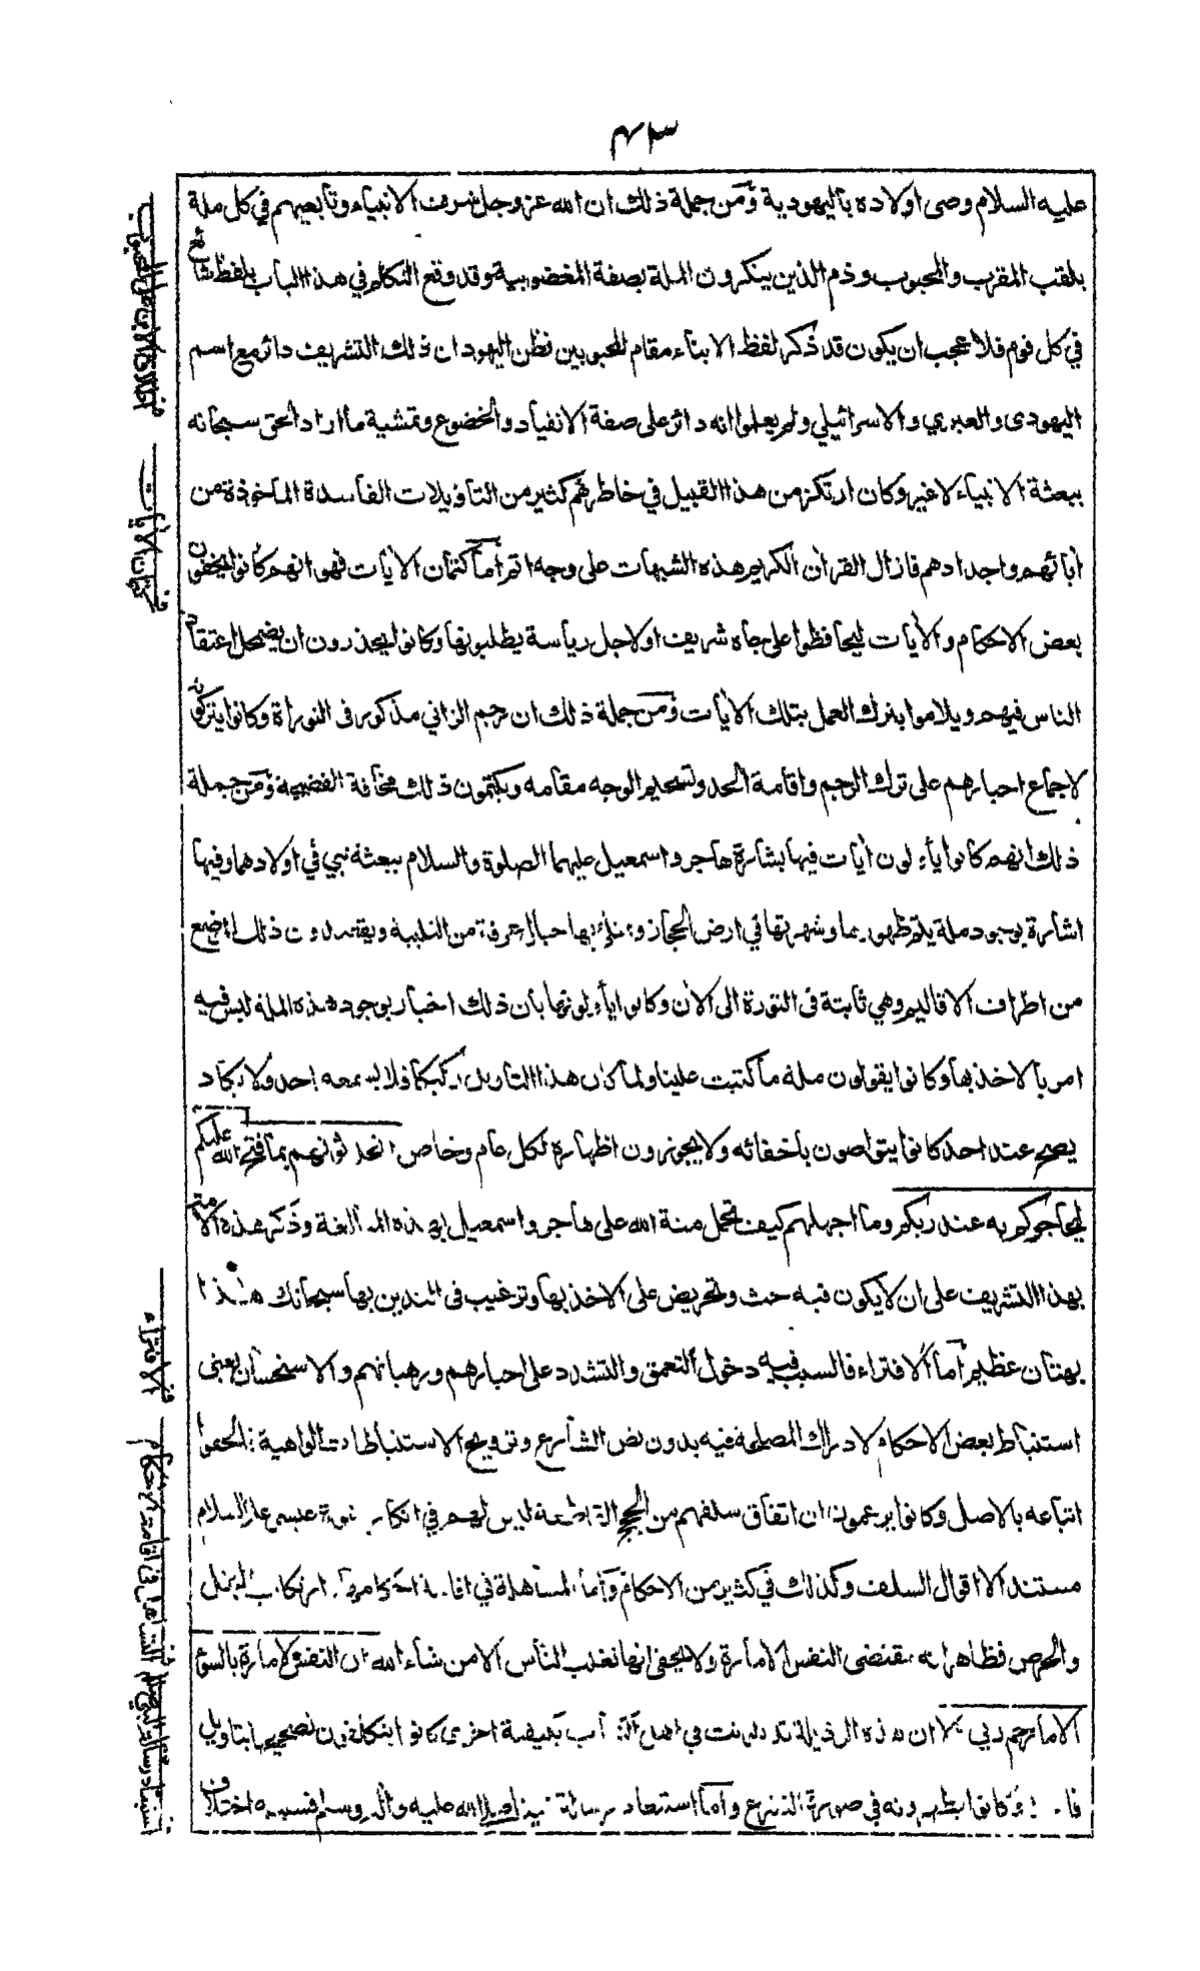 ٤٣
عليه السلام وصى اولاده باليهودية ومن جملة ذلك ان الله عز وجل شرف الانبياء وتابعيهم في كل ملة
بلقب المقرب والمحبوب وذم الذين ينكرون الملة بصفة المغضوبية وقد وقع التكلم في هذا الباب بلفظ شائع
في كل قوم فلا عجب ان يكون قد ذكر لفظ الابناء مقام المحبوبين فظن اليهود ان ذلك التشريف دائر مع اسم
اليهودي والعبري والاسرائيلي ولم يعلموا انه دائر على صفة الانقياد والخضوع وتمشية ما اراد الحق سبحانه
ببعثة الانبياء لا غير وكان ارتكز من هذا القبيل في خاطرهم كثير من التاويلات الفاسدة الماخوذة من
أبائهم واجدادهم فازال القرأن الكريم هذه الشبهات على وجه اتم اما كتمان الأيات فهو انهم كانوا يخفون
بعض الاحكام والأيات ليحافظوا على جاه شريف او لاجل رياسة يطلبونها وكانوا يحذرون ان يضمحل اعتقاد
الناس فيهم ويلاموا بترك العمل بتلك الأيات ومن جملة ذلك ان رجم الزاني مذكور في التوراة وكانوا يتركونه
لاجماع احبارهم على ترك الرجم واقامة الحد وتسحيم الوجه مقامه ويكتمون ذلك مخافة الفضيحة ومن جملة
ذلك انهم كانوا يأولون أيات فيها بشارة هاجر واسمعيل عليهما الصلوة والسلام ببعثة نبي في اولادهما وفيها
اشارة بوجود ملة يتم ظهورها وشهرتها في ارض الحجاز و بها جبال عرفة من التلبية ويقصدون ذلك الموضع
من اطراف الاقاليم وهي ثابتة في التورة الى الأن وكانوا يأولونها بان ذلك اخبار بوجود هذه الملة ليس فيه
امر بالاخذ بها وكانوا يقولون ملحمة كتبت علينا ولما كان هذا التاويل ركيكا فلا يسمعه احد ولا يكاد
يصح عند احد كانوا يتواصون باخفائه ولا يجوزون اظهاره لكل عام وخاص اتحدثونهم بما فتح الله عليكم
ليحاجوكم به عند ربكم وما اجهلهم كيف تحمل منة الله على هاجر واسمعيل بهذه المبالغة وذكر هذه الامة
بهذا التشريف على ان لا يكون فيه حث وتحريض على الاخذ بها وترغيب في التدين بها سبحانك هذا
بهتان عظيم اما الافتراء فالسبب فيه دخول التعمق والتشدد على احبارهم ورهبانهم والاستحسان يعني
استنباط بعض الاحكام لادراك المصلحة فيه بدون نص الشارع وترويج الاستنباطات الواهية فالحقوا
اتباعه بالاصل وكانوا يزعمون ان اتفاق سلفهم من الحجج القاطعة ليس لهم في انكار نبوة عيسى عليه السلام
مستند الا اقوال السلف وكذلك في كثير من الاحكام واما المساهلة في اقامة احكامها وارتكاب البخل
والحرص فظاهر انه مقتضى النفس الامارة ولا يخفى انها تغلب الناس الا من شاء الله ان النفس لامارة بالسوء
الا ما رحم ربي الا ان هذه الرذيلة تلونت في اهل الكتاب بكيفية اخرى كانوا يتكلفون تصحيحها بتاويل
فاسد وكانوا يظهرونه في صورة التشرع واما استبعاد رسالة نبينا صلى الله عليه واله وسلم فسببه اختلاف
ف كتمان الأيات
ف الافتراء
ف التساهل في اقامة الاحكام
ف استبعاد رسالة النبي صلعم